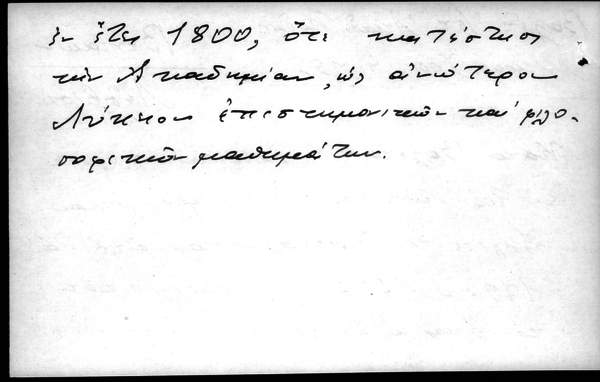 ἐν ἔτει 1800, ὅτε κατέστησε
τὴν Ἀκαδημίαν, ὡς ἀνώτερον
Λύκειον ἐπιστημονικῶν καὶ φιλο-
σοφικῶν μαθημάτων.